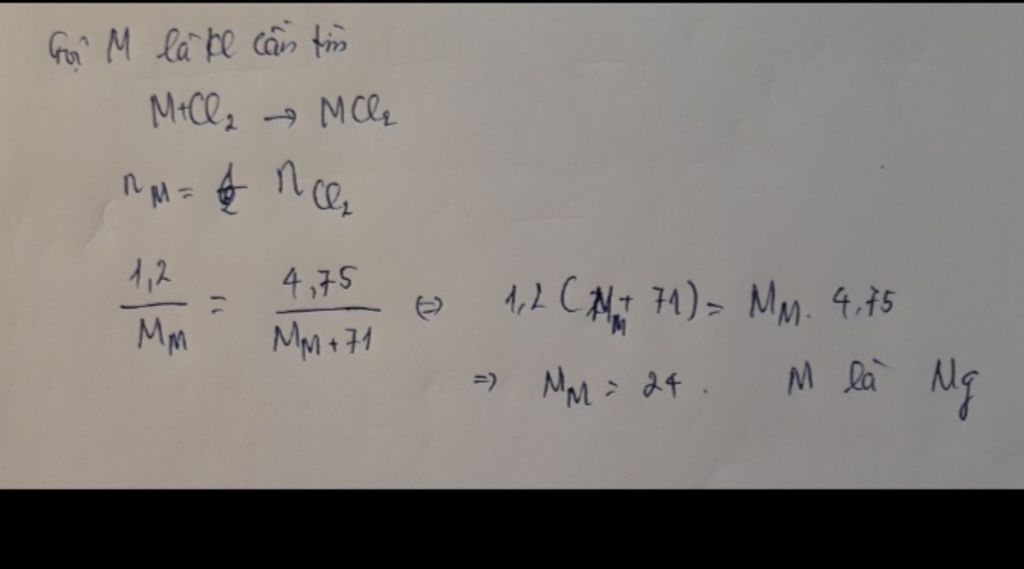 Gọi M là kl cần tìm
M+Cl₂ → MCl₂
n_M = n_Cl₂
1,2/M_M = 4,75/(M_M+71) ⇔ 1,2(M_M+71) = M_M. 4,75
⇒ M_M = 24. M là Mg